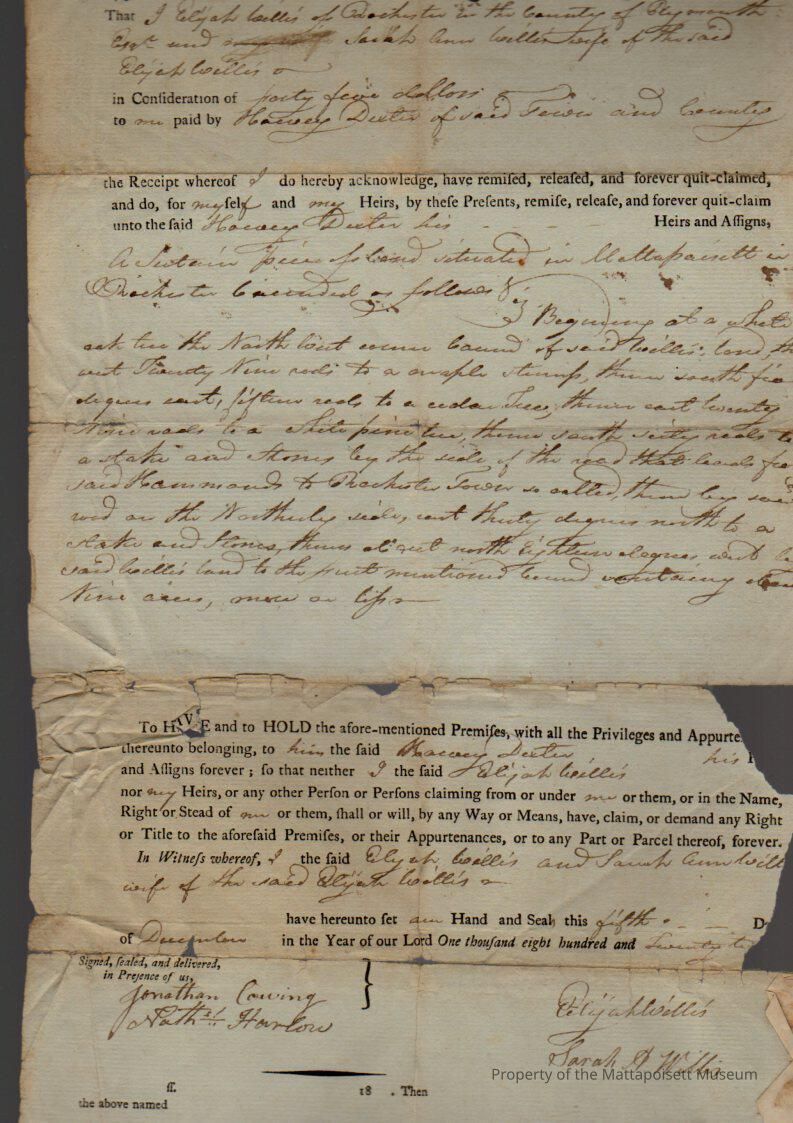 That I Elijah Willis of Rochester in the County of Plymouth
Esqr. and Sarah Ann Willis wife of the said
Elijah Willis
in Conſideration of forty five dollars
to me paid by Harvey Dexter of said Town and County
the Receipt whereof I do hereby acknowledge, have remiſed, releaſed, and forever quit-claimed,
and do, for myself and my Heirs, by theſe Preſents, remiſe, releaſe, and forever quit-claim
unto the ſaid Harvey Dexter his Heirs and Aſſigns,
A Certain piece of Land situated in Mattapoisett in
Rochester bounded as follows Viz
Begining at a white
oak tree the North West corner bound of said Willis' land, th
east Twenty Nine rods to a maple stump, thence south five
degrees east, fifteen rods to a cedar Tree, thence east twenty
Nine rods to a white pine tree, thence south sixty rods to
a stake and Stones by the side of the road that leads fro
said Hammonds to Rochester Town so called, thence by said
road on the Northerly side, west thirty degrees north to a
stake and Stones, thence north Eighteen degrees west by
said Willis land to the first mentioned bound containing
Nine acres, more or less
To HAVE and to HOLD the afore-mentioned Premiſes, with all the Privileges and Appurte
thereunto belonging, to him the ſaid Harvey Dexter his H
and Aſſigns forever; ſo that neither I the ſaid Elijah Willis
nor my Heirs, or any other Perſon or Perſons claiming from or under me or them, or in the Name,
Right or Stead of me or them, ſhall or will, by any Way or Means, have, claim, or demand any Right
or Title to the aforeſaid Premiſes, or their Appurtenances, or to any Part or Parcel thereof, forever.
In Witneſs whereof, I the ſaid Elijah Willis and Sarah Ann Will
wife of the said Elijah Willis
have hereunto ſet our Hand and Seal this fifth D
of December in the Year of our Lord One thouſand eight hundred and Twenty
Signed, ſealed, and delivered,
in Preſence of us,
Jonathan Cowing
Nathl. Harlow
Elijah Willis
Sarah A Willis
Property of the Mattapoisett Museum
ſſ. 18 . Then
the above named